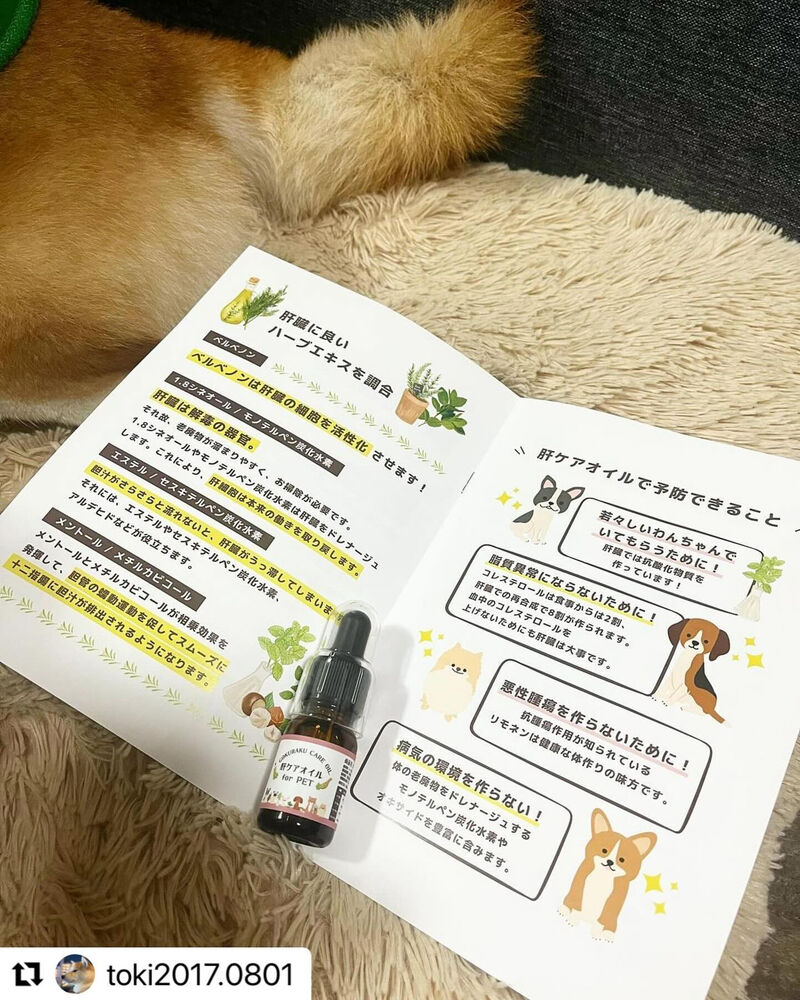 肝臓に良い
ハーブエキスを調合
ベルベノン
ベルベノンは肝臓の細胞を活性化させます！
1.8シネオール / モノテルペン炭化水素
肝臓は解毒の器官。
それ故、老廃物が溜まりやすく、お掃除が必要です。
1.8シネオールやモノテルペン炭化水素は肝臓をドレナージュ
します。これにより、肝細胞は本来の働きを取り戻します。
エステル / セスキテルペン炭化水素
胆汁がさらさらと流れないと、肝臓がうっ滞してしまいま
それには、エステルやセスキテルペン炭化水素、
アルデヒドなどが役立ちます。
メントール / メチルカビコール
メントールとメチルカビコールが相乗効果を
発揮して、胆管の蠕動運動を促してスムーズに
十二指腸に胆汁が排出されるようになります。
肝ケアオイルで予防できること
若々しいわんちゃんで
いてもらうために！
肝臓では抗酸化物質を
作っています！
脂質異常にならないために！
コレステロールは食事からは2割、
肝臓での再合成で8割が作られます。
血中のコレステロールを
上げないためにも肝臓は大事です。
悪性腫瘍を作らないために！
抗腫瘍作用が知られている
リモネンは健康な体作りの味方です。
病気の環境を作らない！
体の老廃物をドレナージュする
モノテルペン炭化水素や
オキサイドを豊富に含みます。
GOKURAKU CARE OIL
肝ケアオイル
for PET
toki2017.0801